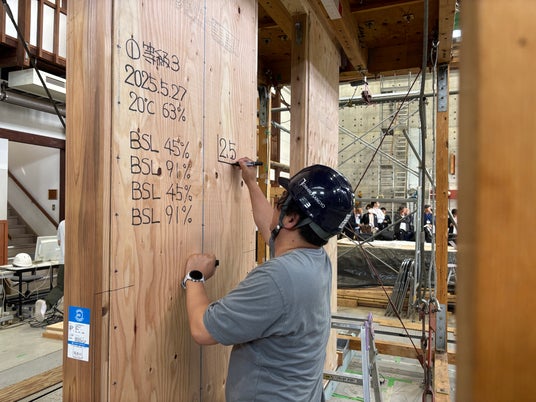 2025.5.27
20℃ 63%
BSL 45%
BSL 91%
BSL 45%
BSL 91%
25